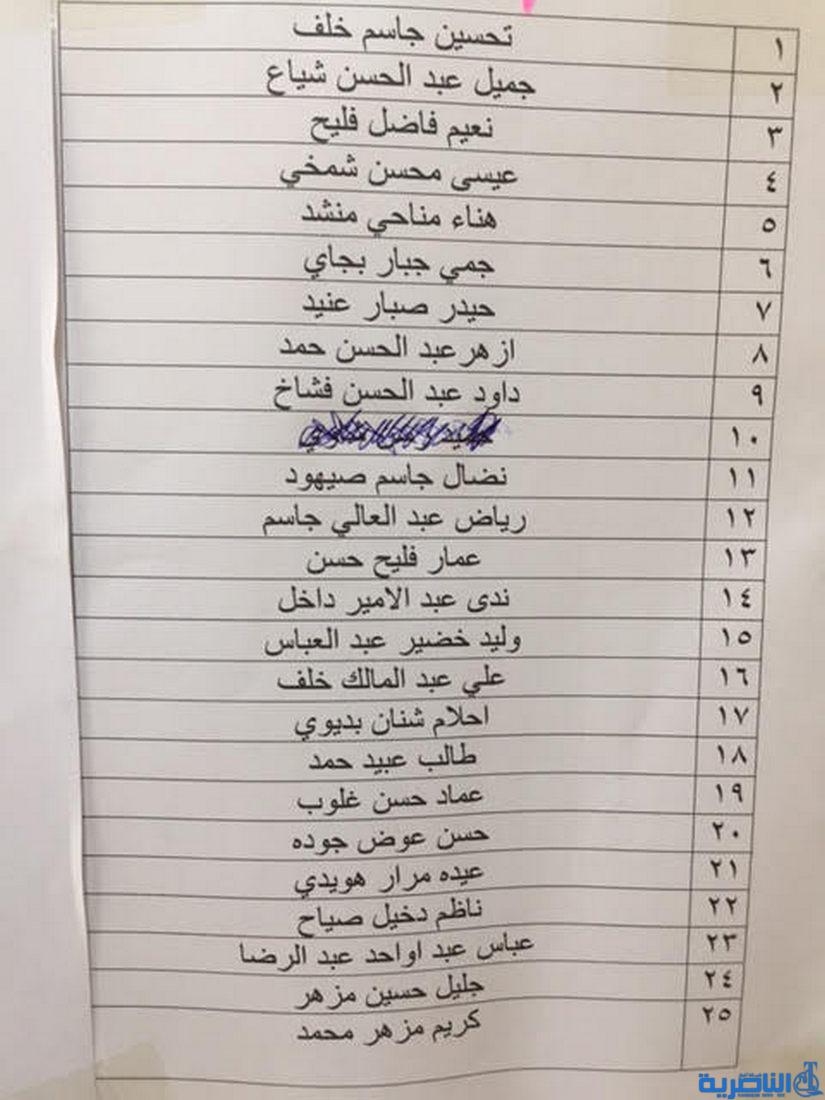 ١ تحسين جاسم خلف
٢ جميل عبد الحسن شياع
٣ نعيم فاضل فليح
٤ عيسى محسن شمخي
٥ هناء مناحي منشد
٦ جمي جبار بجاي
٧ حيدر صبار عنيد
٨ ازهر عبد الحسن حمد
٩ داود عبد الحسن فشاخ
١٠
١١ نضال جاسم صيهود
١٢ رياض عبد العالي جاسم
١٣ عمار فليح حسن
١٤ ندى عبد الامير داخل
١٥ وليد خضير عبد العباس
١٦ علي عبد المالك خلف
١٧ احلام شنان بديوي
١٨ طالب عبيد حمد
١٩ عماد حسن غلوب
٢٠ حسن عوض جوده
٢١ عيده مرار هويدي
٢٢ ناظم دخيل صياح
٢٣ عباس عبد اواحد عبد الرضا
٢٤ جليل حسين مزهر
٢٥ كريم مزهر محمد
الناصرية